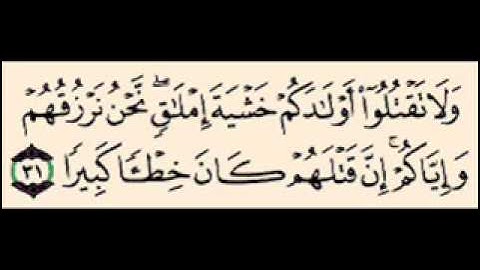 وَلَا تَقۡتُلُوٓاْ أَوۡلَٰدَكُمۡ خَشۡيَةَ إِمۡلَٰقٖۖ نَّحۡنُ نَرۡزُقُهُمۡ
وَإِيَّاكُمۡۚ إِنَّ قَتۡلَهُمۡ كَانَ خِطۡـٔٗا كَبِيرٗا ٣١